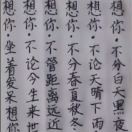 想你·不分白天黑夜
想你·不论天晴下雨
想你·不分春夏秋冬
想你·不管距离远近
想你·不论今生来世
想你·坐着爱来想你